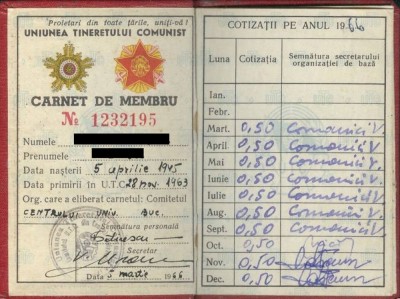 "Proletari din toate țările, uniți-vă!
UNIUNEA TINERETULUI COMUNIST
CARNET DE MEMBRU
№ 1232195
Numele
Prenumele
Data nașterii 5 aprilie 1945
Data primirii în U.T.C. 28 nov. 1963
Org. care a eliberat carnetul: Comitetul
CENTRULUI UNIV. BUC.
Semnătura personală
Secretar
Data 5 martie 1966
COTIZAȚII PE ANUL 1966
Luna Cotizația Semnătura secretarului organizației de bază
Ian.
Febr.
Mart. 0,50 Comanici V.
April. 0,50 Comanici V.
Mai 0,50 Comanici V.
Iunie 0,50 Comanici V.
Iulie 0,50 Comanici V.
Aug. 0,50 Comanici V.
Sept. 0,50 Comanici V.
Oct. 0,50
Nov. 0,50
Dec. 0,50